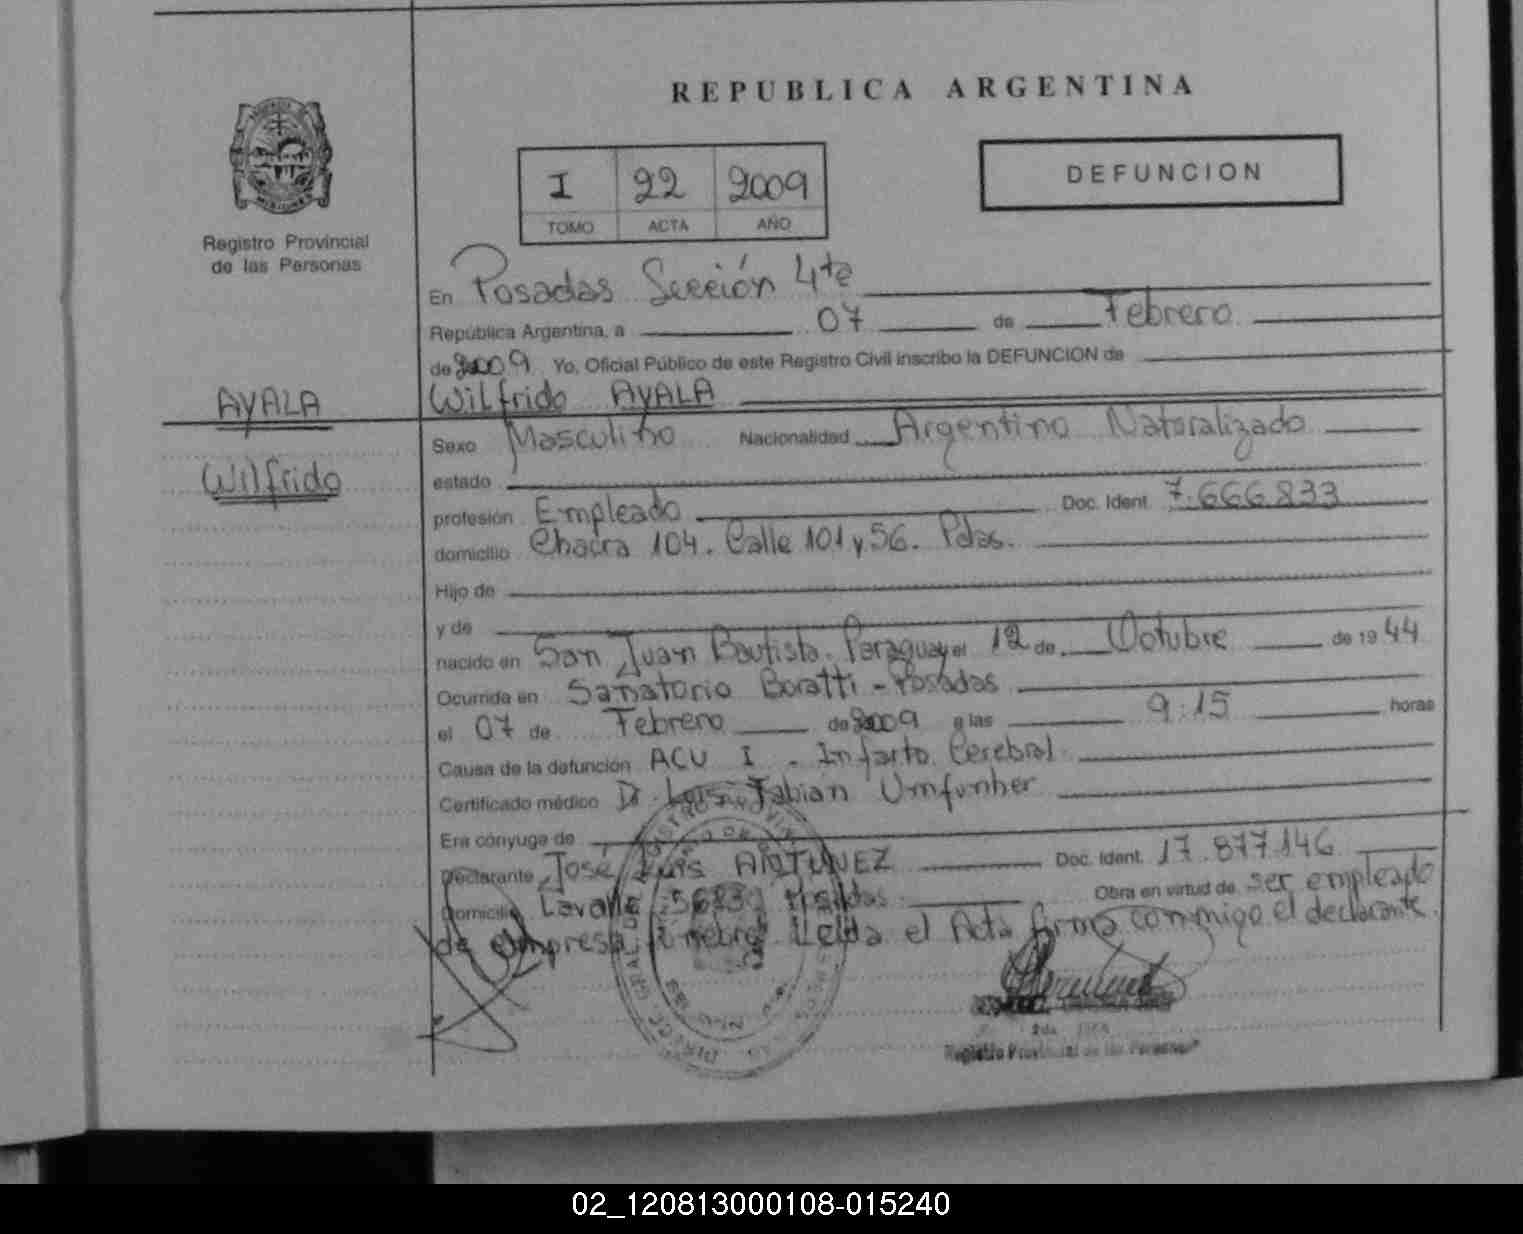 REPUBLICA ARGENTINA
I 22 2009
TOMO ACTA AÑO
DEFUNCION
Registro Provincial
de las Personas
En Posadas Sección 4ta
República Argentina, a 07 de Febrero
de 2009 Yo, Oficial Público de este Registro Civil inscribo la DEFUNCION de
Wilfrido AYALA
AYALA
Wilfrido
Sexo Masculino Nacionalidad Argentino Naturalizado
estado
profesión Empleado Doc. Ident. 7.666.833
domicilio Chacra 104. Calle 101 y 56. Pdas.
Hijo de
y de
nacido en San Juan Bautista. Paraguay el 12 de Octubre de 1944
Ocurrida en Sanatorio Boratti - Posadas
el 07 de Febrero de 2009 a las 9:15 horas
Causa de la defunción ACV I - Infarto Cerebral
Certificado médico Dr. Luis Fabian Umfunher
Era cónyuge de
Declarante José Luis ANTUNEZ Doc. Ident. 17.877.146
Domicilio Lavalle Posadas Obra en virtud de ser empleado
de empresa funebre. Leída el Acta firma conmigo el declarante.
Registro Provincial de las Personas
02_120813000108-015240